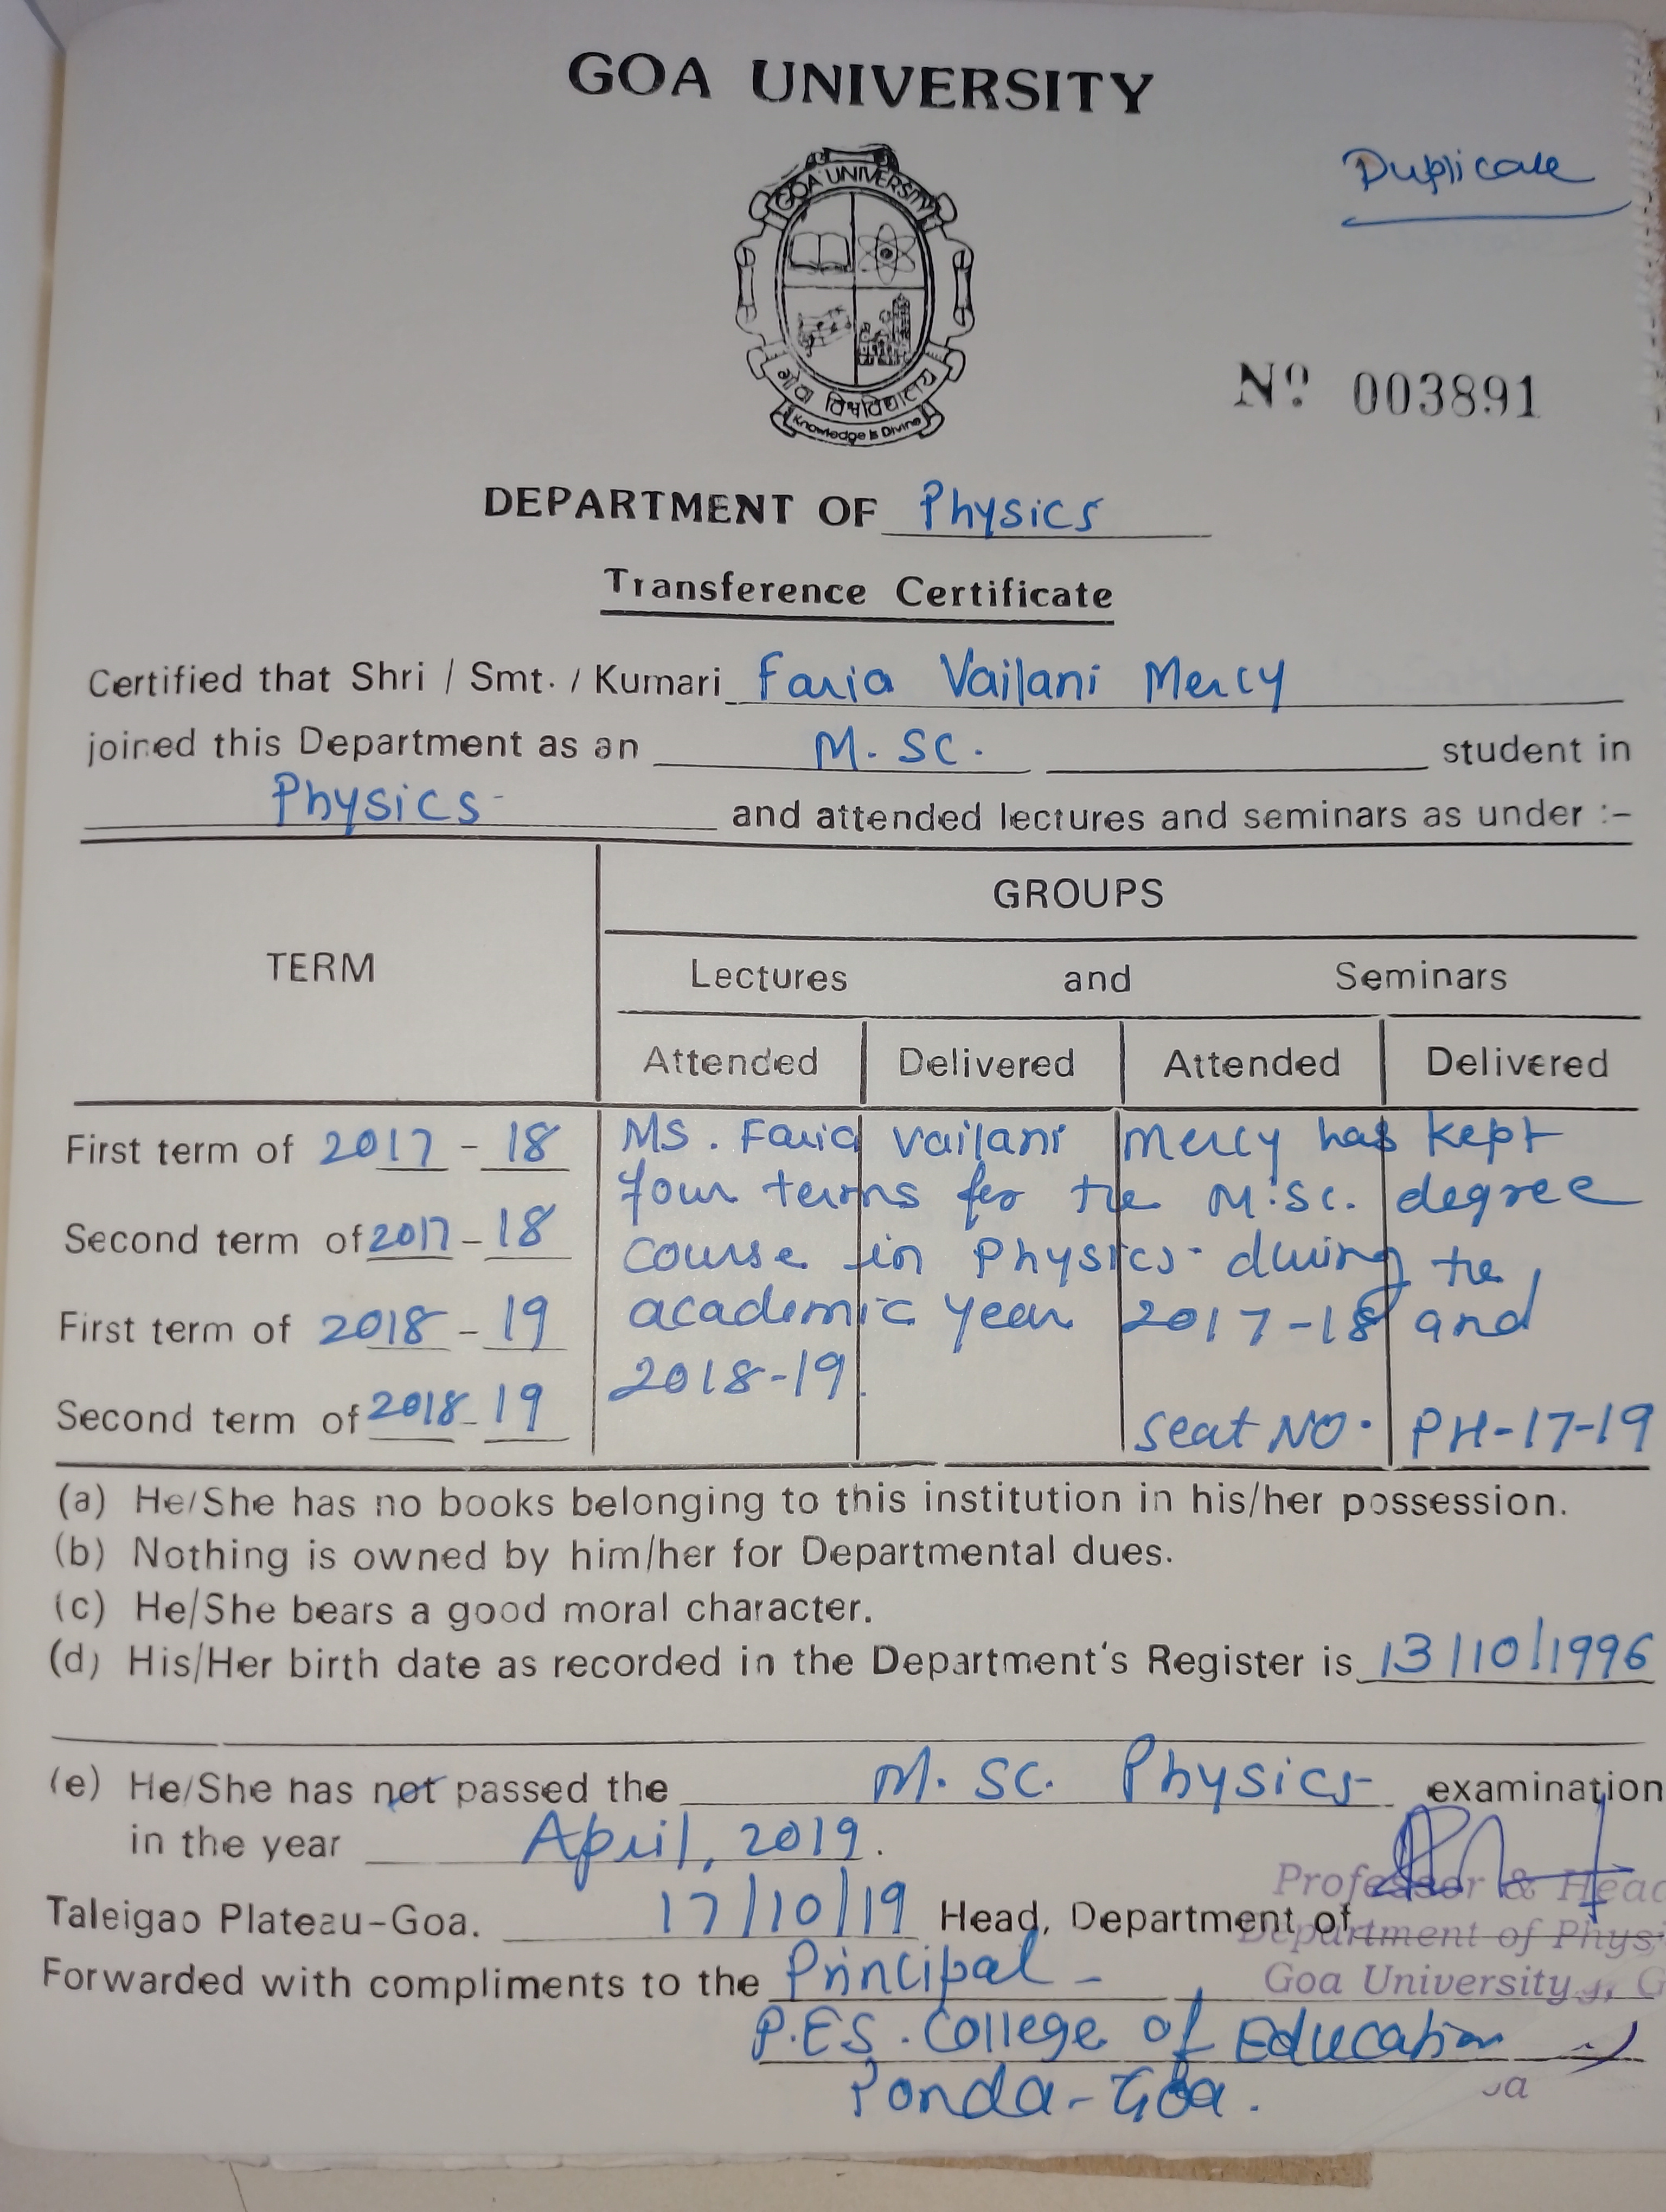 GOA UNIVERSITY
Duplicate
GOA UNIVERSITY
गोंय विश्वविद्यालय
Knowledge is Divine
Nº 003891
DEPARTMENT OF Physics
Transference Certificate
Certified that Shri / Smt. / Kumari Faria Vailani Mercy
joined this Department as an M. Sc. student in
Physics and attended lectures and seminars as under :-
GROUPS
TERM
Lectures and Seminars
Attended Delivered Attended Delivered
First term of 2017 - 18
Second term of 2017 - 18
First term of 2018 - 19
Second term of 2018 - 19
Ms. Faria Vailani Mercy has kept
four terms for the M.Sc. degree
course in Physics during the
academic year 2017-18 and
2018-19.
Seat NO. PH-17-19
(a) He/She has no books belonging to this institution in his/her possession.
(b) Nothing is owned by him/her for Departmental dues.
(c) He/She bears a good moral character.
(d) His/Her birth date as recorded in the Department's Register is 13/10/1996
(e) He/She has not passed the M. Sc. Physics examination
in the year April, 2019.
Professor & Head
Taleigao Plateau-Goa. 17/10/19 Head, Department of
Department of Phys
Forwarded with compliments to the Principal -
Goa University, G
P.E.S. College of Education
Ponda - Goa.